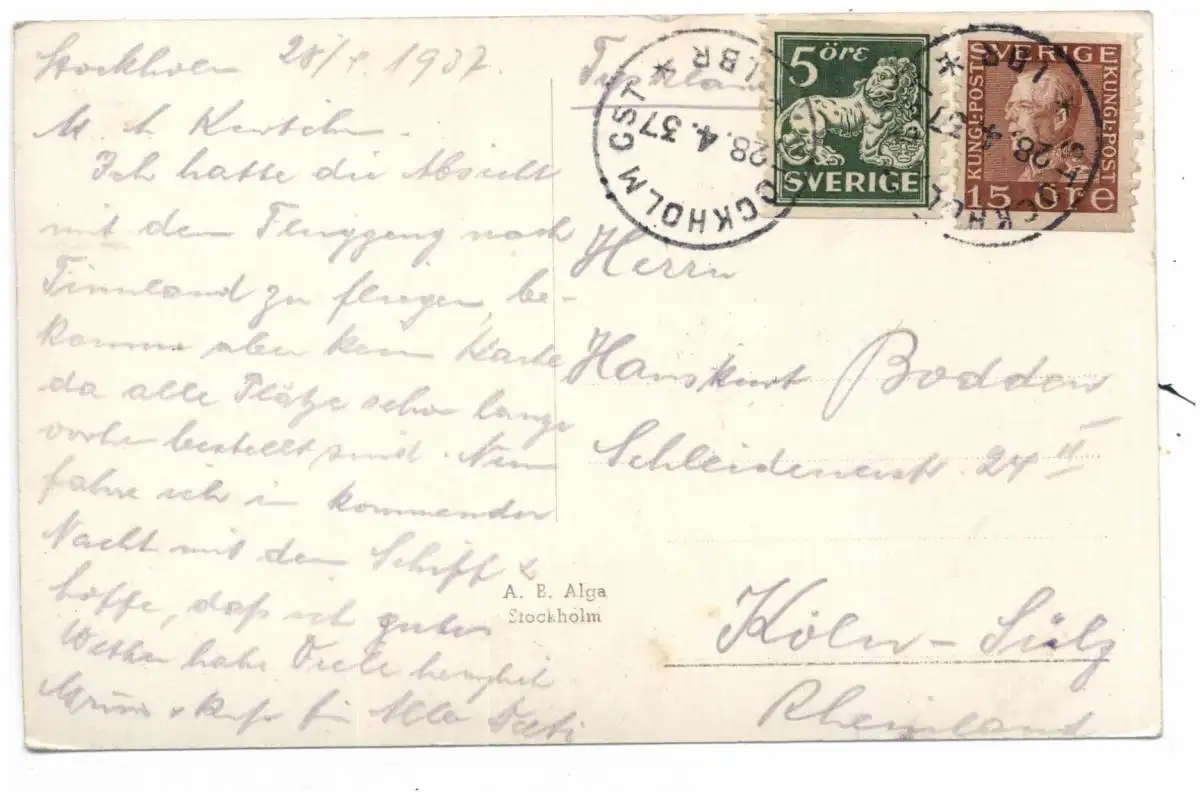 Stockholm 28/4. 1937.
M. l. Kurtchen.
Ich hatte die Absicht
mit dem Flugzeug nach
Finnland zu fliegen, be-
komme aber kein Karte
da alle Plätze schon lange
vorher bestellt sind. Nun
fahre ich in kommender
Nacht mit dem Schiff &
hoffe, daß ich gutes
Wetter habe Viele herzlich
für Alle
5 öre
SVERIGE
SVERIGE
KUNGL·POST
KUNGL·POST
15 ÖRE
STOCKHOLM CST
28.4.37
LBR
STOCKHOLM
28.4.37
LBR
Herrn
Hanskurt Bodden
Schleidenerstr. 24 II
Köln-Sülz
Rheinland
A. B. Alga
Stockholm